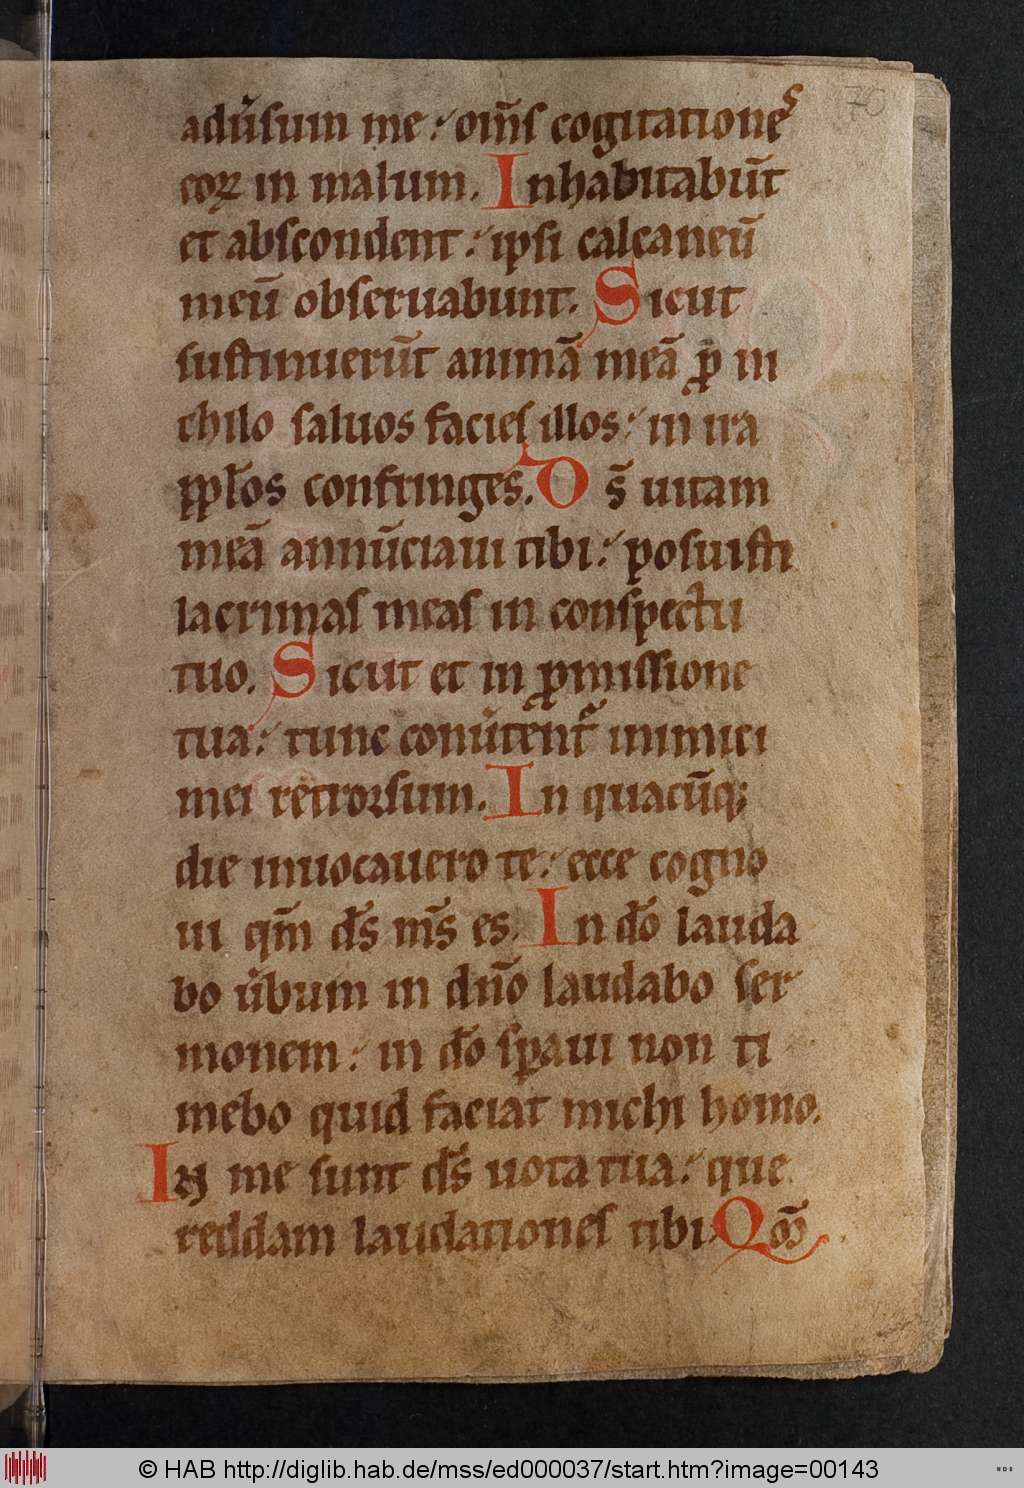 70
adu̓sum me : om̄s cogitationes
eoꝝ in malum. Inhabitabūt
et abscondent : ipsi calcaneū
meū obseruabunt. Sicut
sustinuerūt animā meā ꝓ in
chilo saluos facies illos : in ira
pplos confringes. Ds̄ uitam
meā annūciaui tibi : posuisti
lacrimas meas in conspectu
tuo. Sicut et in ꝓmissione
tua : tunc conu̓tent᷑ inimici
mei retrorsum. In quacūqꝫ
die inuocauero te : ecce cogno
ui qm̄ ds̄ ms̄ es. In do̅ lauda
bo u̓bum in dn̄o laudabo ser
monem : in do̅ spaui non ti
mebo quid faciat michi homo.
In me sunt ds̄ uota tua : que
reddam laudationes tibi. Qm̄
© HAB http://diglib.hab.de/mss/ed000037/start.htm?image=00143